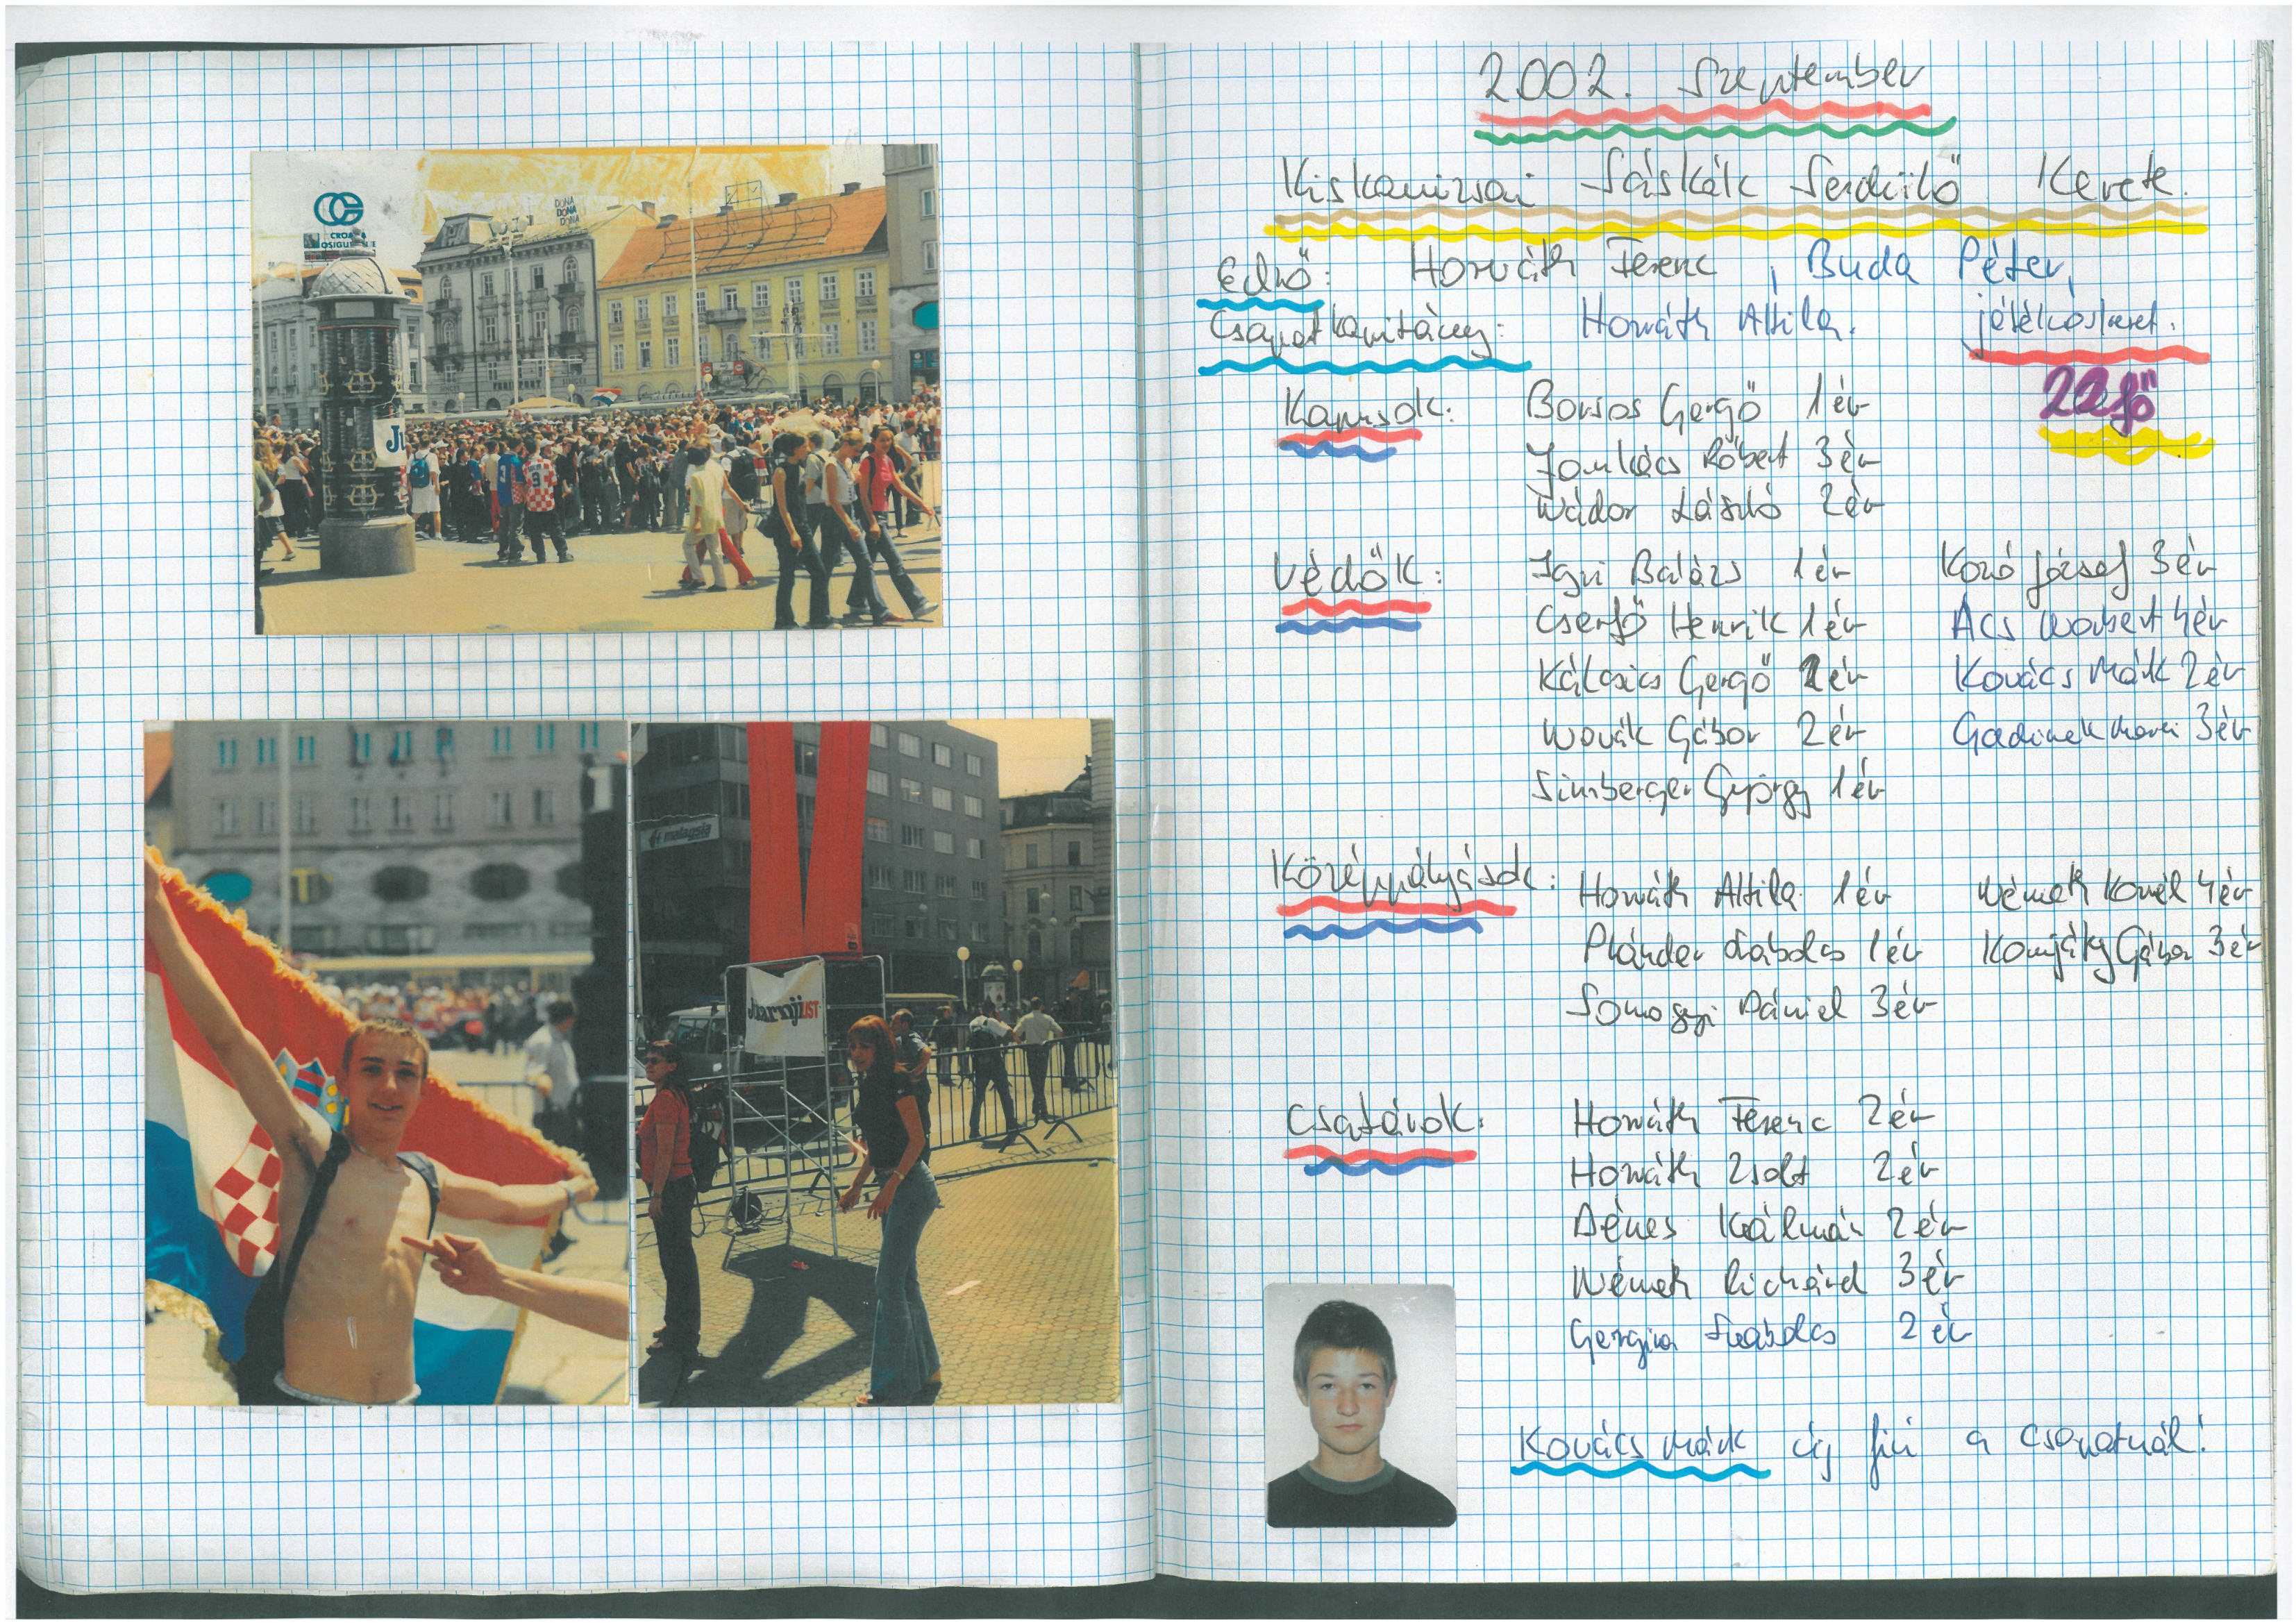 CROATIA
OSIGURANJE
DONA
DONA
DONA
malaysia
Jutarnji LIST
2002. Szeptember
Kiskanizsai Sáskák Serdülő Kerete.
Edző: Horváth Ferenc, Buda Péter,
Csapatkapitány: Horváth Attila. játékoskeret.
22 fő
Kapusok: Borsos Gergő 1 év
Jankács Róbert 3 év
Nádor László 2 év
Védők: Igri Balázs 1 év
Cserfő Henrik 1 év
Kálcsics Gergő 2 év
Novák Gábor 2 év
Simberger György 1 év
József 3 év
Ács Norbert 4 év
Kovács Márk 2 év
Gadinek 3 év
Középpályások: Horváth Attila 1 év
Plánder Szabolcs 1 év
Somogyi Dániel 3 év
Németh Kornél 4 év
Komjáty Gábor 3 év
Csatárok: Horváth Ferenc 2 év
Horváth Zsolt 2 év
Dénes Kálmán 2 év
Németh Richárd 3 év
Szabolcs 2 év
Kovács Márk új fiú a csapatnál!